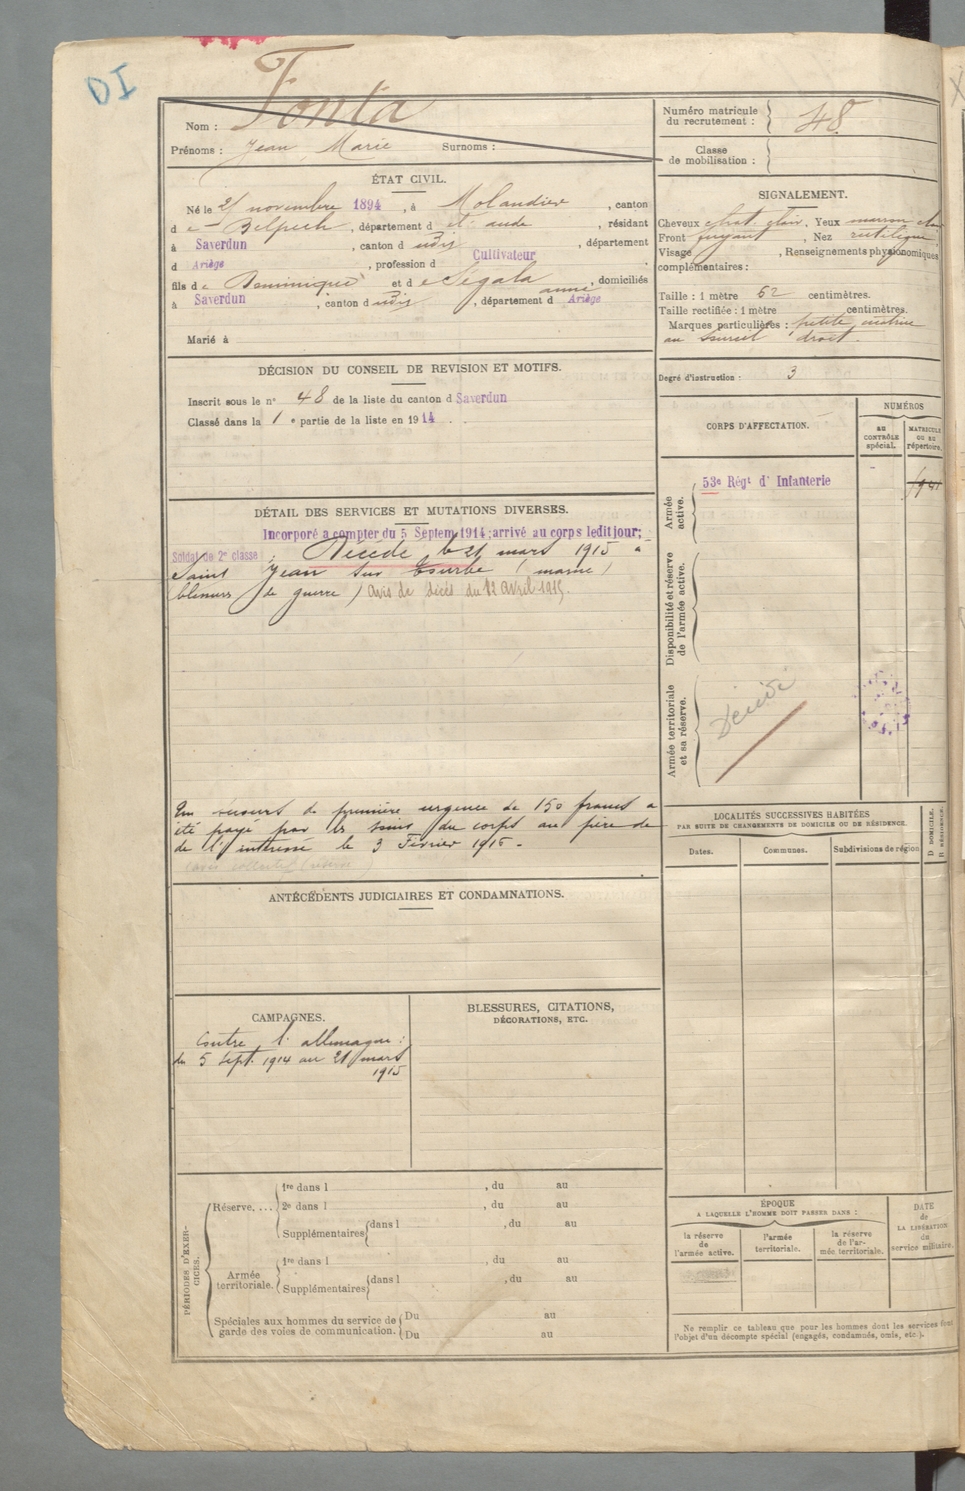 DI
Nom : Fonta
Prénoms : Jean Marie Surnoms :
Numéro matricule du recrutement : 48
Classe de mobilisation :
ÉTAT CIVIL.
Né le 21 novembre 1894, à Molandier, canton
de Belpech, département d et aude, résidant
à Saverdun, canton d udis, département
d Ariège, profession d Cultivateur
fils de Dominique et de Ségala anne, domiciliés
à Saverdun, canton d udis, département d Ariège
Marié à
SIGNALEMENT.
Cheveux chat. clair, Yeux marron clair
Front fuyant, Nez rectiligne
Visage , Renseignements physionomiques
complémentaires :
Taille : 1 mètre 62 centimètres.
Taille rectifiée : 1 mètre centimètres.
Marques particulières : petite cicatrice
au sourcil droit.
Degré d'instruction : 3
DÉCISION DU CONSEIL DE REVISION ET MOTIFS.
Inscrit sous le n° 48 de la liste du canton d Saverdun
Classé dans la 1 e partie de la liste en 1914
CORPS D'AFFECTATION.
NUMÉROS
au CONTRÔLE spécial.
MATRICULE OU AU répertoire.
Armée active.
53e Régt d' Infanterie
Disponibilité et réserve de l'armée active.
Armée territoriale et sa réserve.
Décédé
DÉTAIL DES SERVICES ET MUTATIONS DIVERSES.
Incorporé a compter du 5 Septem. 1914; arrivé au corps ledit jour;
Soldat de 2e classe ; Décédé le 21 mars 1915 à
Saint Jean sur Tourbe (marne)
blessures de guerre) avis de décès du 12 avril 1915.
Un secours de première urgence de 150 francs a
été payé par les soins du corps au père de
de l'intéressé le 3 Février 1916.
ANTÉCÉDENTS JUDICIAIRES ET CONDAMNATIONS.
LOCALITÉS SUCCESSIVES HABITÉES
PAR SUITE DE CHANGEMENTS DE DOMICILE OU DE RÉSIDENCE.
Dates. Communes. Subdivisions de région
D DOMICILE.
R RÉSIDENCE.
CAMPAGNES.
Contre l'allemagne :
du 5 sept. 1914 au 21 mars
1915
BLESSURES, CITATIONS,
DÉCORATIONS, ETC.
PÉRIODES D'EXERCICES.
Réserve....
1re dans l , du au
2e dans l , du au
Supplémentaires dans l , du au
Armée territoriale.
1re dans l , du au
Supplémentaires dans l , du au
Spéciales aux hommes du service de garde des voies de communication.
Du au
Du au
ÉPOQUE
A LAQUELLE L'HOMME DOIT PASSER DANS :
la réserve de l'armée active.
l'armée territoriale.
la réserve de l'armée territoriale.
DATE de LA LIBÉRATION du service militaire.
Ne remplir ce tableau que pour les hommes dont les services font
l'objet d'un décompte spécial (engagés, condamnés, omis, etc.).